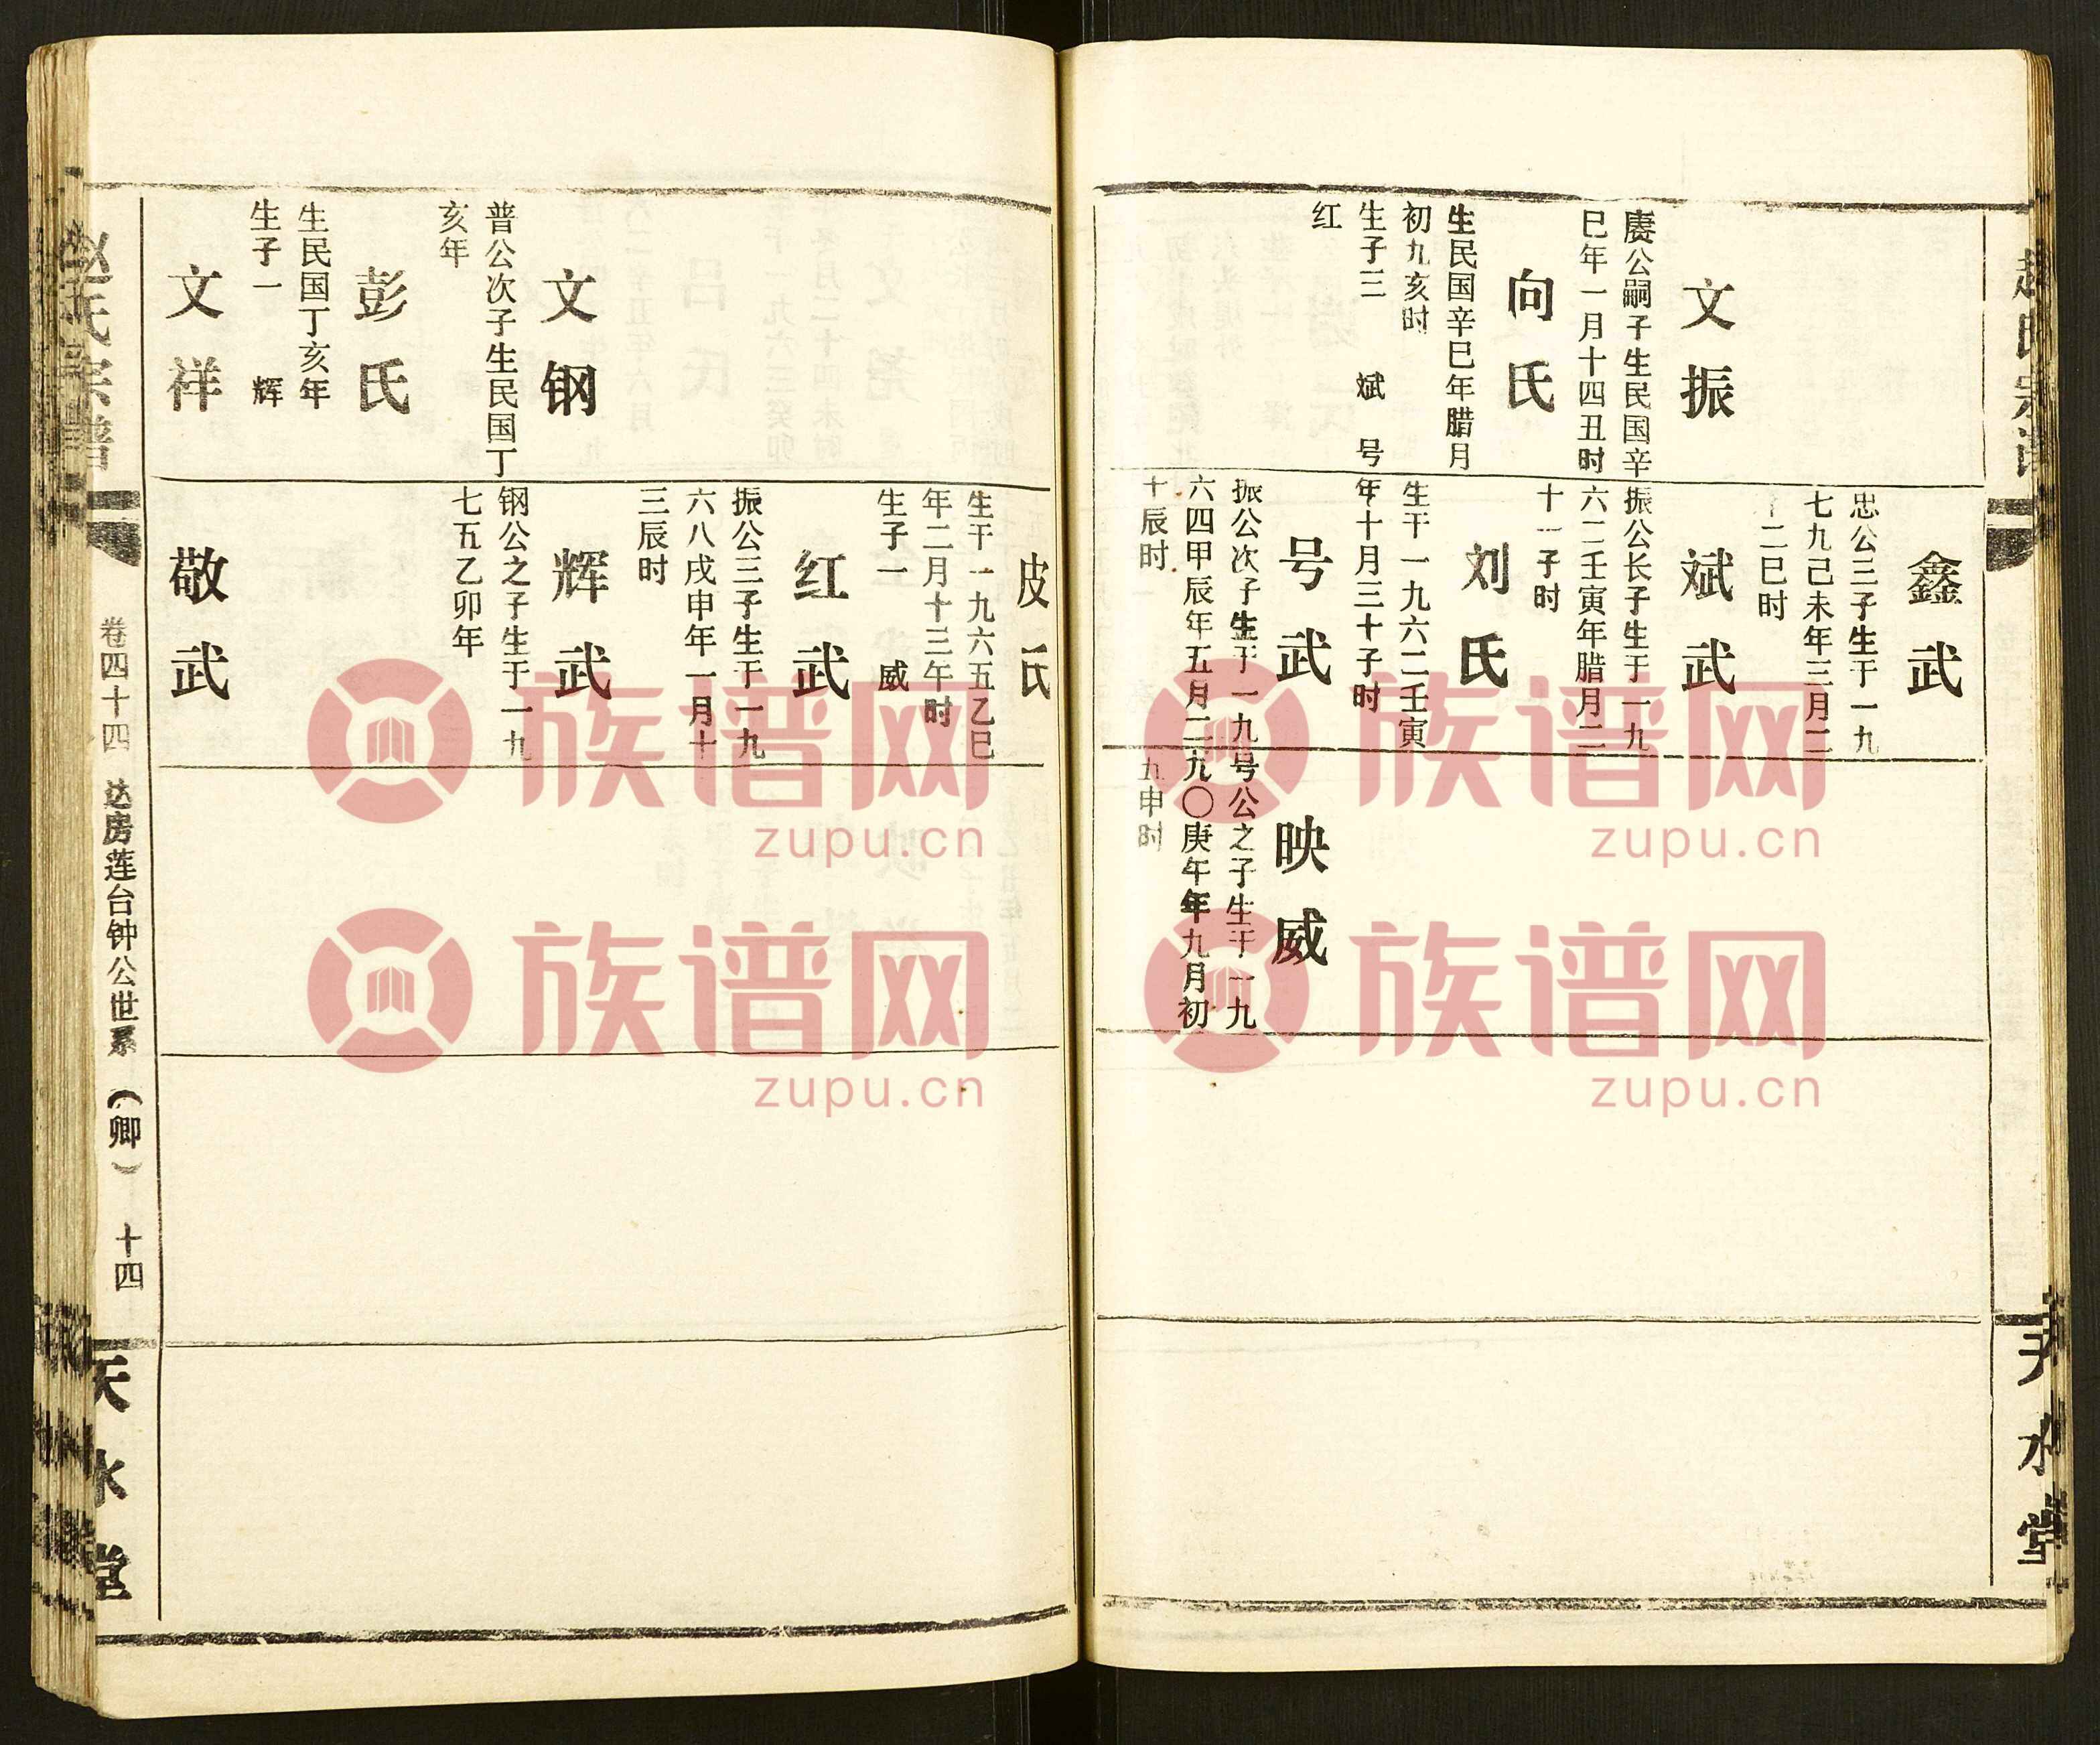 文振
赓公嗣子生民国辛
巳年一月十四丑时
向氏
生民国辛巳年腊月
初九亥时
生子三 斌 号
红
鑫武
忠公三子生于一九
七九己未年三月二
十二巳时
斌武
振公长子生于一九
六二壬寅年腊月二
十一子时
刘氏
生于一九六二壬寅
年十月三十子时
号武
振公次子生于一九
六四甲辰年五月二
十辰时
映威
号公之子生于一九
九〇庚午年九月初
五申时
天水堂
文钢
普公次子生民国丁
亥年
彭氏
生民国丁亥年
生子一 辉
文祥
皮氏
生于一九六五乙巳
年二月十三午时
生子一 威
红武
振公三子生于一九
六八戌申年一月十
三辰时
辉武
钢公之子生于一九
七五乙卯年
敬武
赵氏宗谱
卷四十四 达房莲台钟公世系（卿） 十四
天水堂
族谱网
zupu.cn
族谱网
zupu.cn
族谱网
zupu.cn
族谱网
zupu.cn